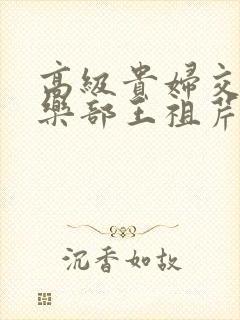 高級貴婦交
樂部王祖芹
沉香如故